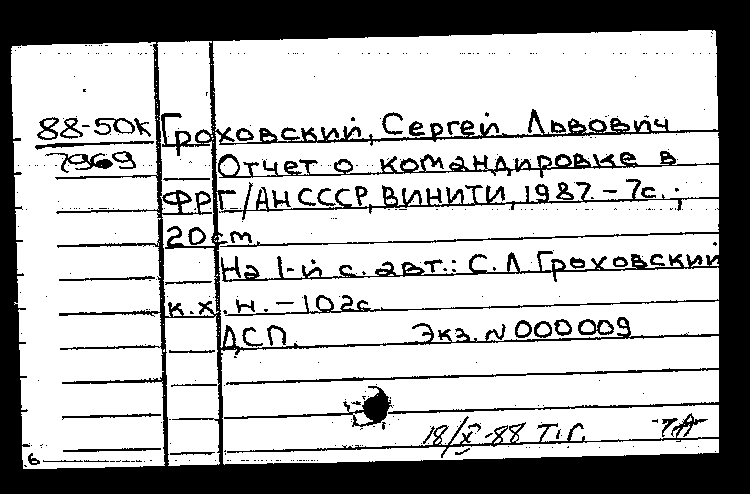 88-50К Гроховский, Сергей Львович
7969 Отчет о командировке в
ФРГ/АН СССР, ВИНИТИ, 1987.-7с.;
20 cm.
На 1-й с. авт.: С.Л Гроховский
к.х.н.-102с.
ДСП. Экз. N 000009
18/X-88 Т.Г.
6